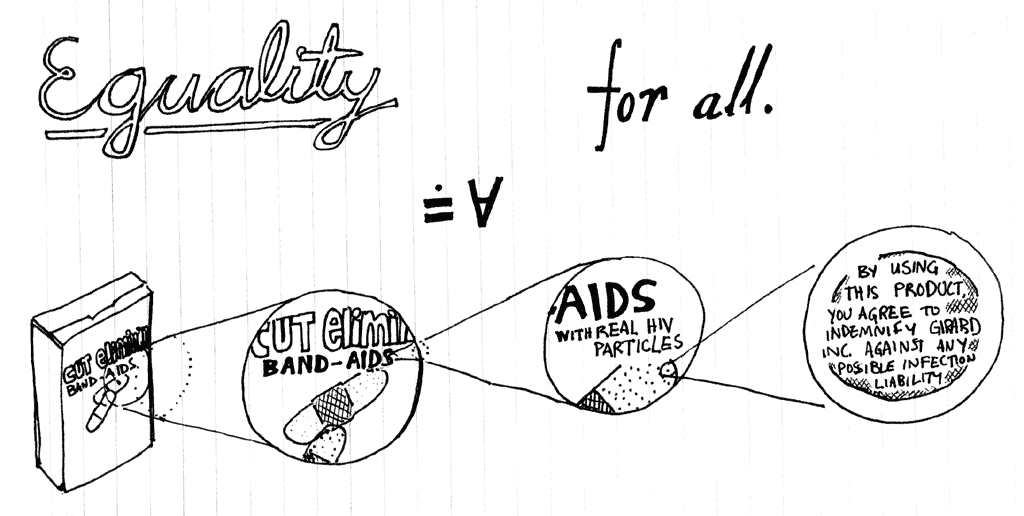 Equality
for all.
≐ ∀
CUT elimin
BAND-AIDS.
CUT elimin
BAND-AIDS
-AIDS
WITH REAL HIV
PARTICLES
BY USING
THIS PRODUCT,
YOU AGREE TO
INDEMNIFY GIRARD
INC. AGAINST ANY
POSIBLE INFECTION
LIABILITY